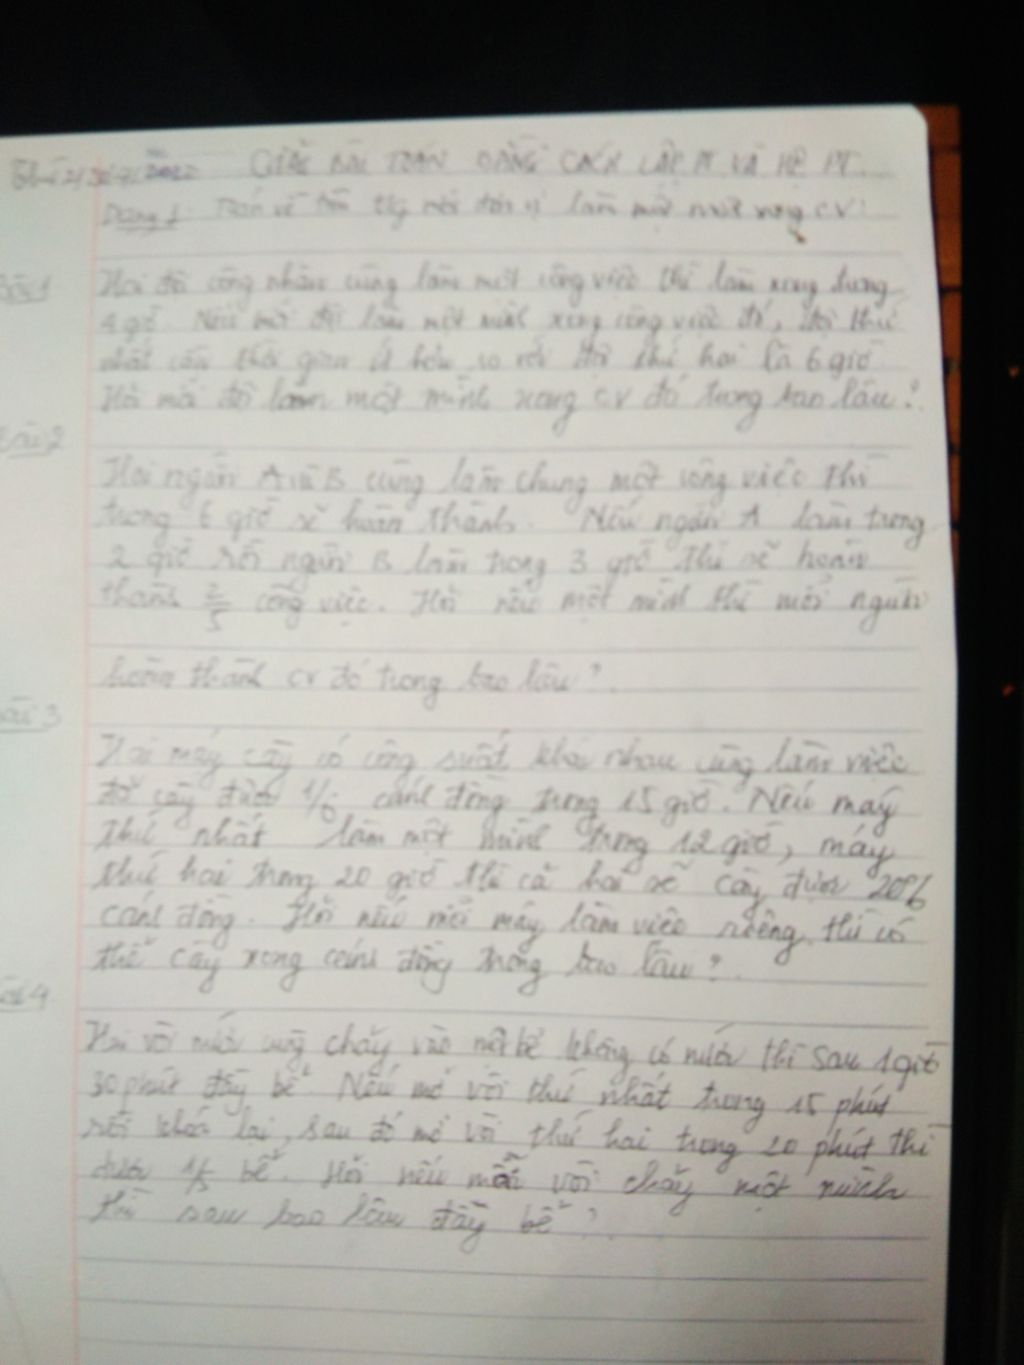 GIẢI BÀI TOÁN BẰNG CÁCH LẬP PT VÀ HỆ PT.
Dạng 1: Toán về làm một xong CV:
Bài 1
Hai đội công nhân cùng làm một công việc thì làm xong trong
4 giờ. Nếu mỗi đội làm một mình xong công việc đó, đội thứ
nhất cần thời gian ít hơn so với đội thứ hai là 6 giờ.
Hỏi mỗi đội làm một mình xong CV đó trong bao lâu?
Bài 2
Hai người A và B cùng làm chung một công việc thì
trong giờ sẽ hoàn thành. Nếu người A làm trong
2 giờ rồi người B làm trong 3 giờ thì sẽ hoàn
thành 2/5 công việc. Hỏi nếu một mình thì mỗi người
hoàn thành CV đó trong bao lâu?
Bài 3
Hai máy cày có công suất khác nhau cùng làm việc
đã cày được 1/6 cánh đồng trong 15 giờ. Nếu máy
thứ nhất làm một mình trong 12 giờ, máy
thứ hai trong 20 giờ thì cả hai sẽ cày được 20%
cánh đồng. Hỏi nếu mỗi máy làm việc riêng thì có
thể cày xong cánh đồng trong bao lâu?
Bài 4
Hai vòi nước cùng chảy vào một bể không có nước thì sau 1 giờ
30 phút đầy bể. Nếu mở vòi thứ nhất trong 15 phút
rồi khoá lại, sau đó mở vòi thứ hai trong 20 phút thì
được 1/5 bể. Hỏi nếu mỗi vòi chảy một mình
thì sau bao lâu đầy bể?